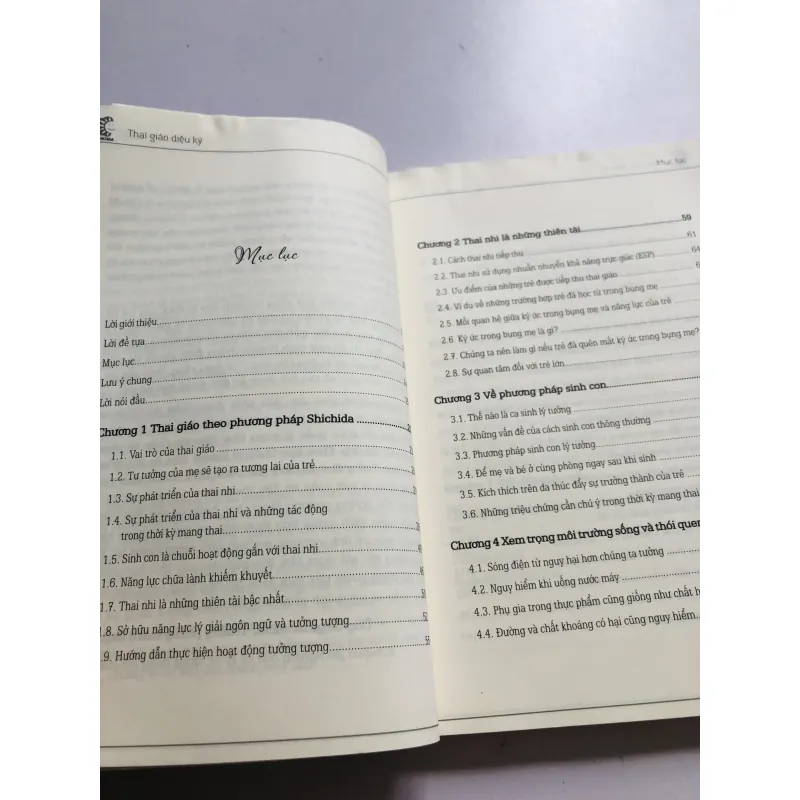 Thai giáo diệu kỳ
Mục lục
Lời giới thiệu
Lời đề tựa
Mục lục
Lưu ý chung
Lời nói đầu
Chương 1 Thai giáo theo phương pháp Shichida
1.1. Vai trò của thai giáo
1.2. Tư tưởng của mẹ sẽ tạo ra tương lai của trẻ
1.3. Sự phát triển của thai nhi
1.4. Sự phát triển của thai nhi và những tác động
trong thời kỳ mang thai
1.5. Sinh con là chuỗi hoạt động gắn với thai nhi
1.6. Năng lực chữa lành khiếm khuyết
1.7. Thai nhi là những thiên tài bậc nhất
1.8. Sở hữu năng lực lý giải ngôn ngữ và tưởng tượng
.9. Hướng dẫn thực hiện hoạt động tưởng tượng
Mục lục
Chương 2 Thai nhi là những thiên tài 59
2.1. Cách thai nhi tiếp thu 61
2.2. Thai nhi sử dụng nhuần nhuyễn khả năng trực giác (ESP) 64
2.3 Ưu điểm của những trẻ được tiếp thu thai giáo
2.4. Ví dụ về những trường hợp trẻ đã học từ trong bụng mẹ
2.5. Mối quan hệ giữa ký ức trong bụng mẹ và năng lực của trẻ
2.6 Ký ức trong bụng mẹ là gì?
2.7. Chúng ta nên làm gì nếu trẻ đã quên mất ký ức trong bụng mẹ?
2.8. Sự quan tâm đối với trẻ lớn
Chương 3 Về phương pháp sinh con
3.1. Thế nào là ca sinh lý tưởng
3.2. Những vấn đề của cách sinh con thông thường
3.3. Phương pháp sinh con lý tưởng
3.4. Để mẹ và bé ở cùng phòng ngay sau khi sinh
3.5. Kích thích trên da thúc đẩy sự trưởng thành của trẻ
3.6. Những triệu chứng cần chú ý trong thời kỳ mang thai
Chương 4 Xem trọng môi trường sống và thói quen
4.1. Sóng điện từ nguy hại hơn chúng ta tưởng
4.2. Nguy hiểm khi uống nước máy
4.3. Phụ gia trong thực phẩm cũng giống như chất
4.4. Đường và chất khoáng có hại cũng nguy hiểm